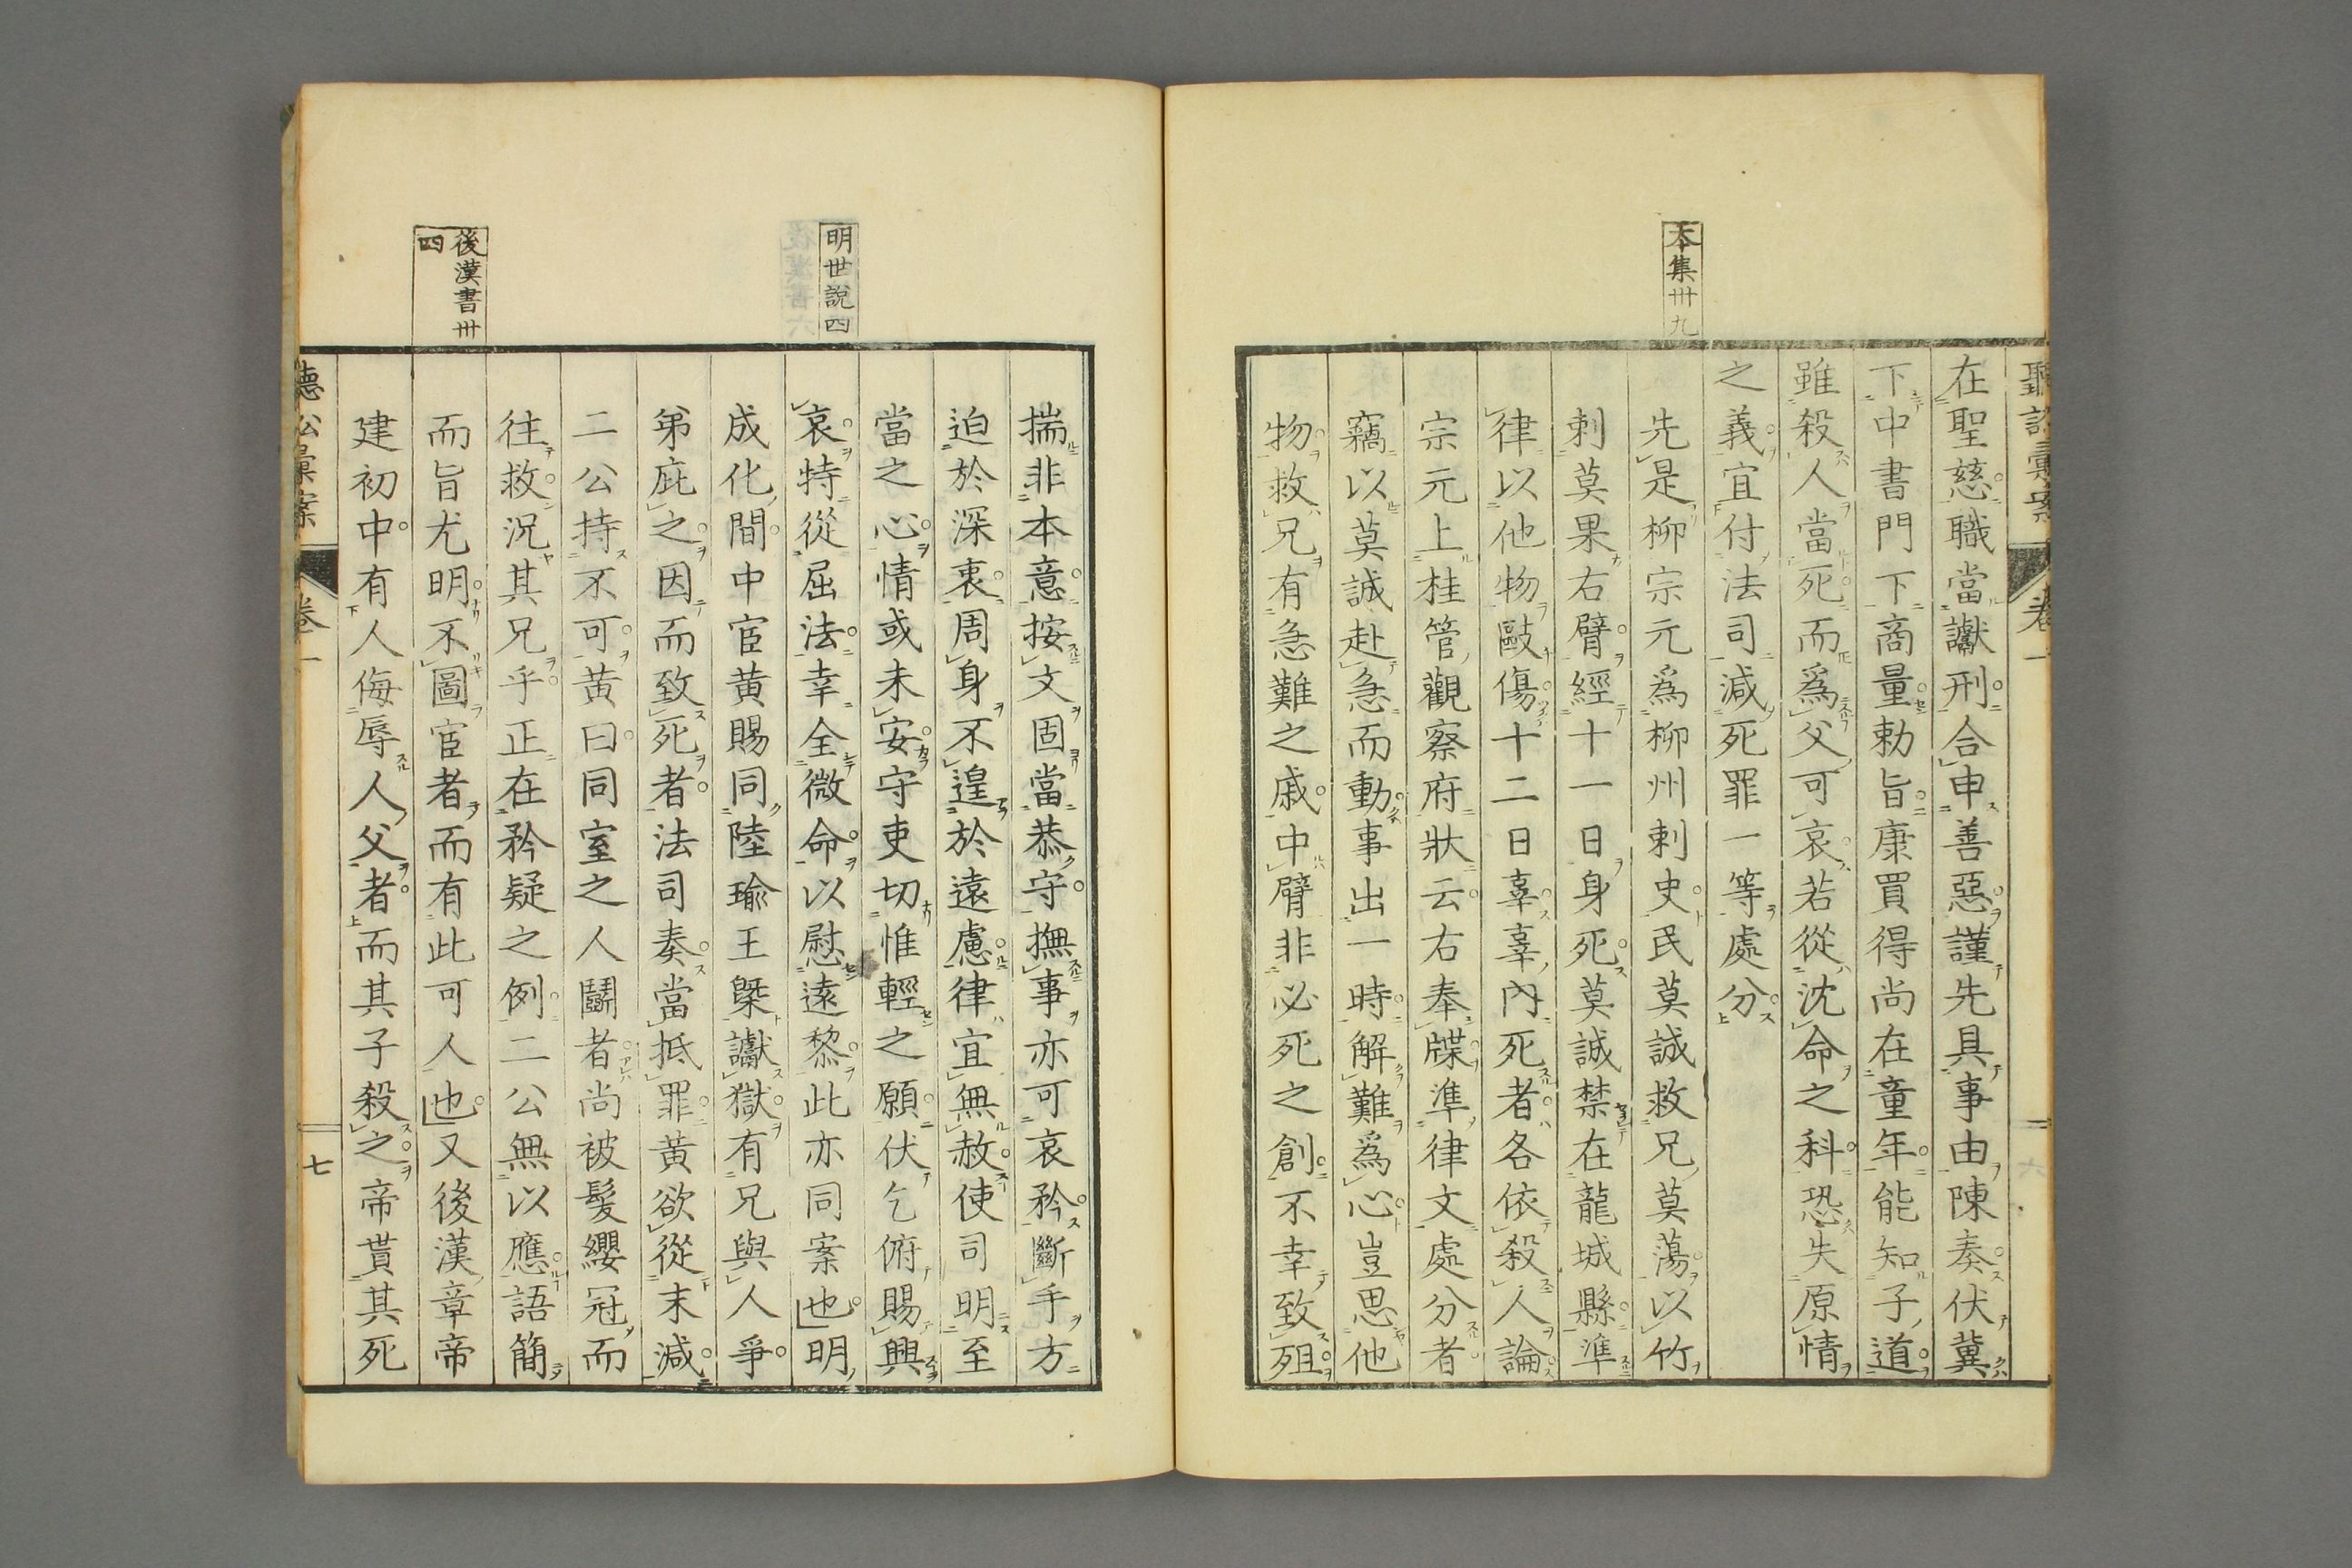 本集卅九
在聖慈職當讞刑合申善惡謹先具事由陳奏伏冀
下中書門下商量勅旨康買得尚在童年能知子道
雖殺人當死而爲父可哀若從沈命之科恐失原情
之義宜付法司減死罪一等處分
先是柳宗元爲柳州刺史民莫誠救兄莫蕩以竹
刺莫果右臂經十一日身死莫誠禁在龍城縣準
律以他物敺傷十二日辜辜內死者各依殺人論
宗元上桂管觀察府狀云右奉牒準律文處分者
竊以莫誠赴急而動事出一時解難爲心豈思他
物救兄有急難之戚中臂非必死之創不幸致殂
明世說四
後漢書卅
四
揣非本意按文固當恭守撫事亦可哀矜斷手方
迫於深衷周身不遑於遠慮律宜無赦使司明至
當之心情或未安守吏切惟輕之願伏乞俯賜興
哀特從屈法幸全微命以慰遠黎此亦同案也明
成化間中宦黃賜同陸瑜王槩讞獄有兄與人爭
弟庇之因而致死者法司奏當抵罪黃欲從末減
二公持不可黃曰同室之人鬪者尚被髮纓冠而
往救況其兄乎正在矜疑之例二公無以應語簡
而旨尤明不圖宦者而有此可人也又後漢章帝
建初中有人侮辱人父者而其子殺之帝貰其死
卷一
七